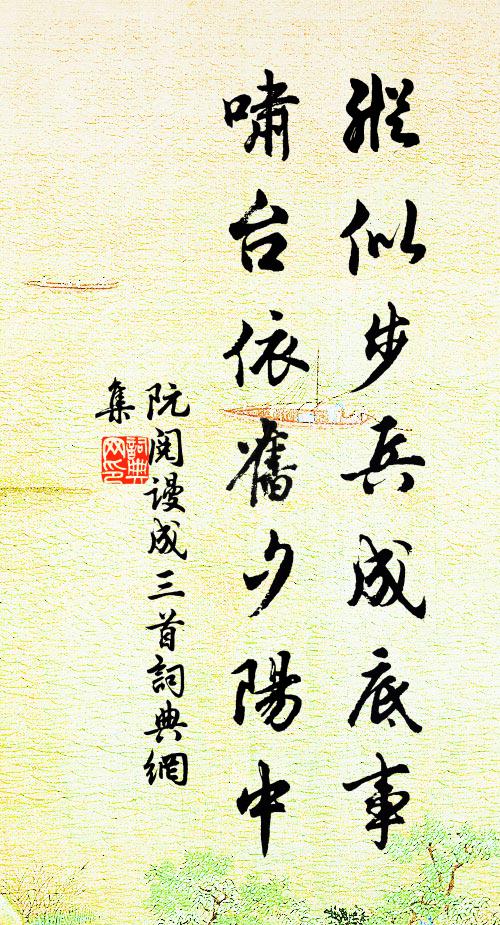 縱似步兵成底事
嘯台依舊夕陽中
阮閱謾成三首詞典網
集
詞典網印